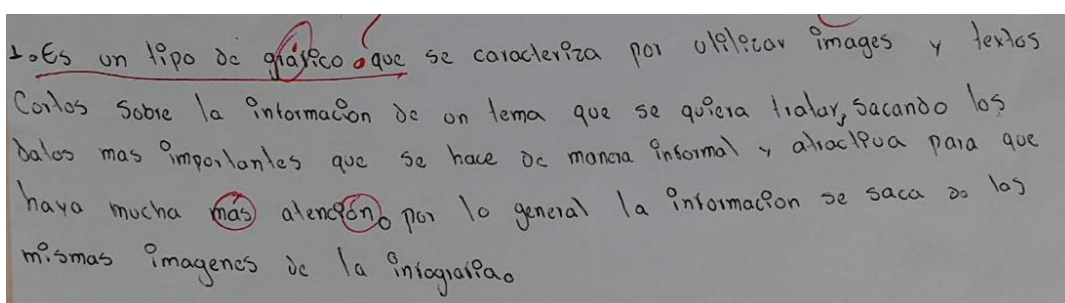 1. Es un tipo de gráfico. que se caracteriza por utilizar images y textos
Cortos sobre la informacion de un tema que se quiera tratar, sacando los
datos mas importantes que se hace de manera informal y atractiva para que
haya mucha más atención. por lo general la informacion se saca de las
mismas imagenes de la infografia.